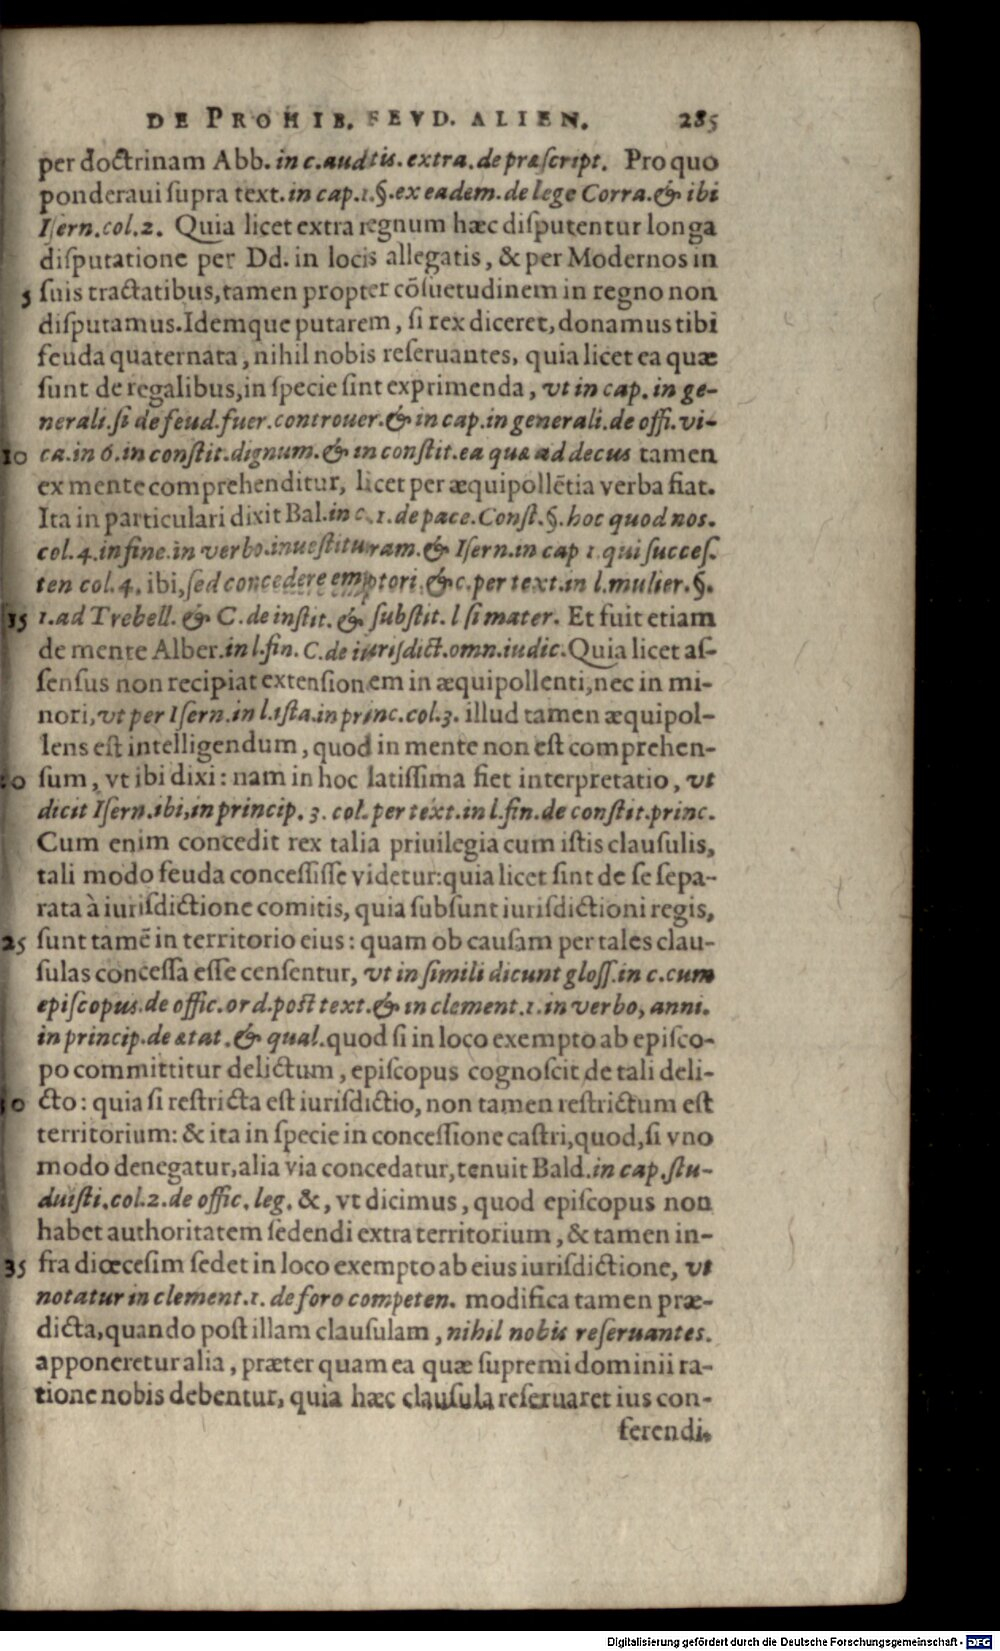 DE PROHIB. FEVD. ALIEN. 285
per doctrinam Abb. in c. audtis. extra. de præſcript. Pro quo
ponderaui ſupra text. in cap. 1. §. ex eadem. de lege Corra. & ibi
Iſern. col. 2. Quia licet extra regnum hæc diſputentur longa
diſputatione per Dd. in locis allegatis, & per Modernos in
5 ſuis tractatibus, tamen propter cõſuetudinem in regno non
diſputamus. Idemque putarem, ſi rex diceret, donamus tibi
feuda quaternata, nihil nobis reſeruantes, quia licet ea quæ
ſunt de regalibus, in ſpecie ſint exprimenda, vt in cap. in ge-
nerali. ſi de feud. fuer. controuer. & in cap. in generali. de offi. vi-
10 ca. in 6. in conſtit. dignum. & in conſtit. ea quæ ad decus tamen
ex mente comprehenditur, licet per æquipollẽtia verba fiat.
Ita in particulari dixit Bal. in c. 1. de pace. Conſt. §. hoc quod nos.
col. 4. in fine. in verbo. inueſtituram. & Iſern. in cap 1. qui ſucceſ.
ten col. 4. ibi, ſed concedere emptori. &c. per text. in l. mulier. §.
15 1. ad Trebell. & C. de inſtit. & ſubſtit. l ſi mater. Et fuit etiam
de mente Alber. in l. fin. C. de iuriſdict. omn. iudic. Quia licet aſ-
ſenſus non recipiat extenſionem in æquipollenti, nec in mi-
nori, vt per Iſern. in l. iſta. in princ. col. 3. illud tamen æquipol-
lens eſt intelligendum, quod in mente non eſt comprehen-
20 ſum, vt ibi dixi: nam in hoc latiſſima fiet interpretatio, vt
dicit Iſern. ibi, in princip. 3. col. per text. in l. fin. de conſtit. princ.
Cum enim concedit rex talia priuilegia cum iſtis clauſulis,
tali modo feuda conceſſiſſe videtur: quia licet ſint de ſe ſepa-
rata à iuriſdictione comitis, quia ſubſunt iuriſdictioni regis,
25 ſunt tamẽ in territorio eius: quam ob cauſam per tales clau-
ſulas conceſſa eſſe cenſentur, vt in ſimili dicunt gloſſ. in c. cum
epiſcopus. de offic. ord. poſt text. & in clement. 1. in verbo, anni.
in princip. de ætat. & qual. quod ſi in loco exempto ab epiſco-
po committitur delictum, epiſcopus cognoſcit de tali deli-
30 cto: quia ſi reſtricta eſt iuriſdictio, non tamen reſtrictum eſt
territorium: & ita in ſpecie in conceſſione caſtri, quod, ſi vno
modo denegatur, alia via concedatur, tenuit Bald. in cap. ſtu-
duiſti. col. 2. de offic. leg. &, vt dicimus, quod epiſcopus non
habet authoritatem ſedendi extra territorium, & tamen in-
35 fra diœceſim ſedet in loco exempto ab eius iuriſdictione, vt
notatur in clement. 1. de foro competen. modifica tamen præ-
dicta, quando poſt illam clauſulam, nihil nobis reſeruantes.
apponeretur alia, præter quam ea quæ ſupremi dominii ra-
tione nobis debentur, quia hæc clauſula reſeruaret ius con-
ferendi.
Digitalisierung gefördert durch die Deutsche Forschungsgemeinschaft - DFG